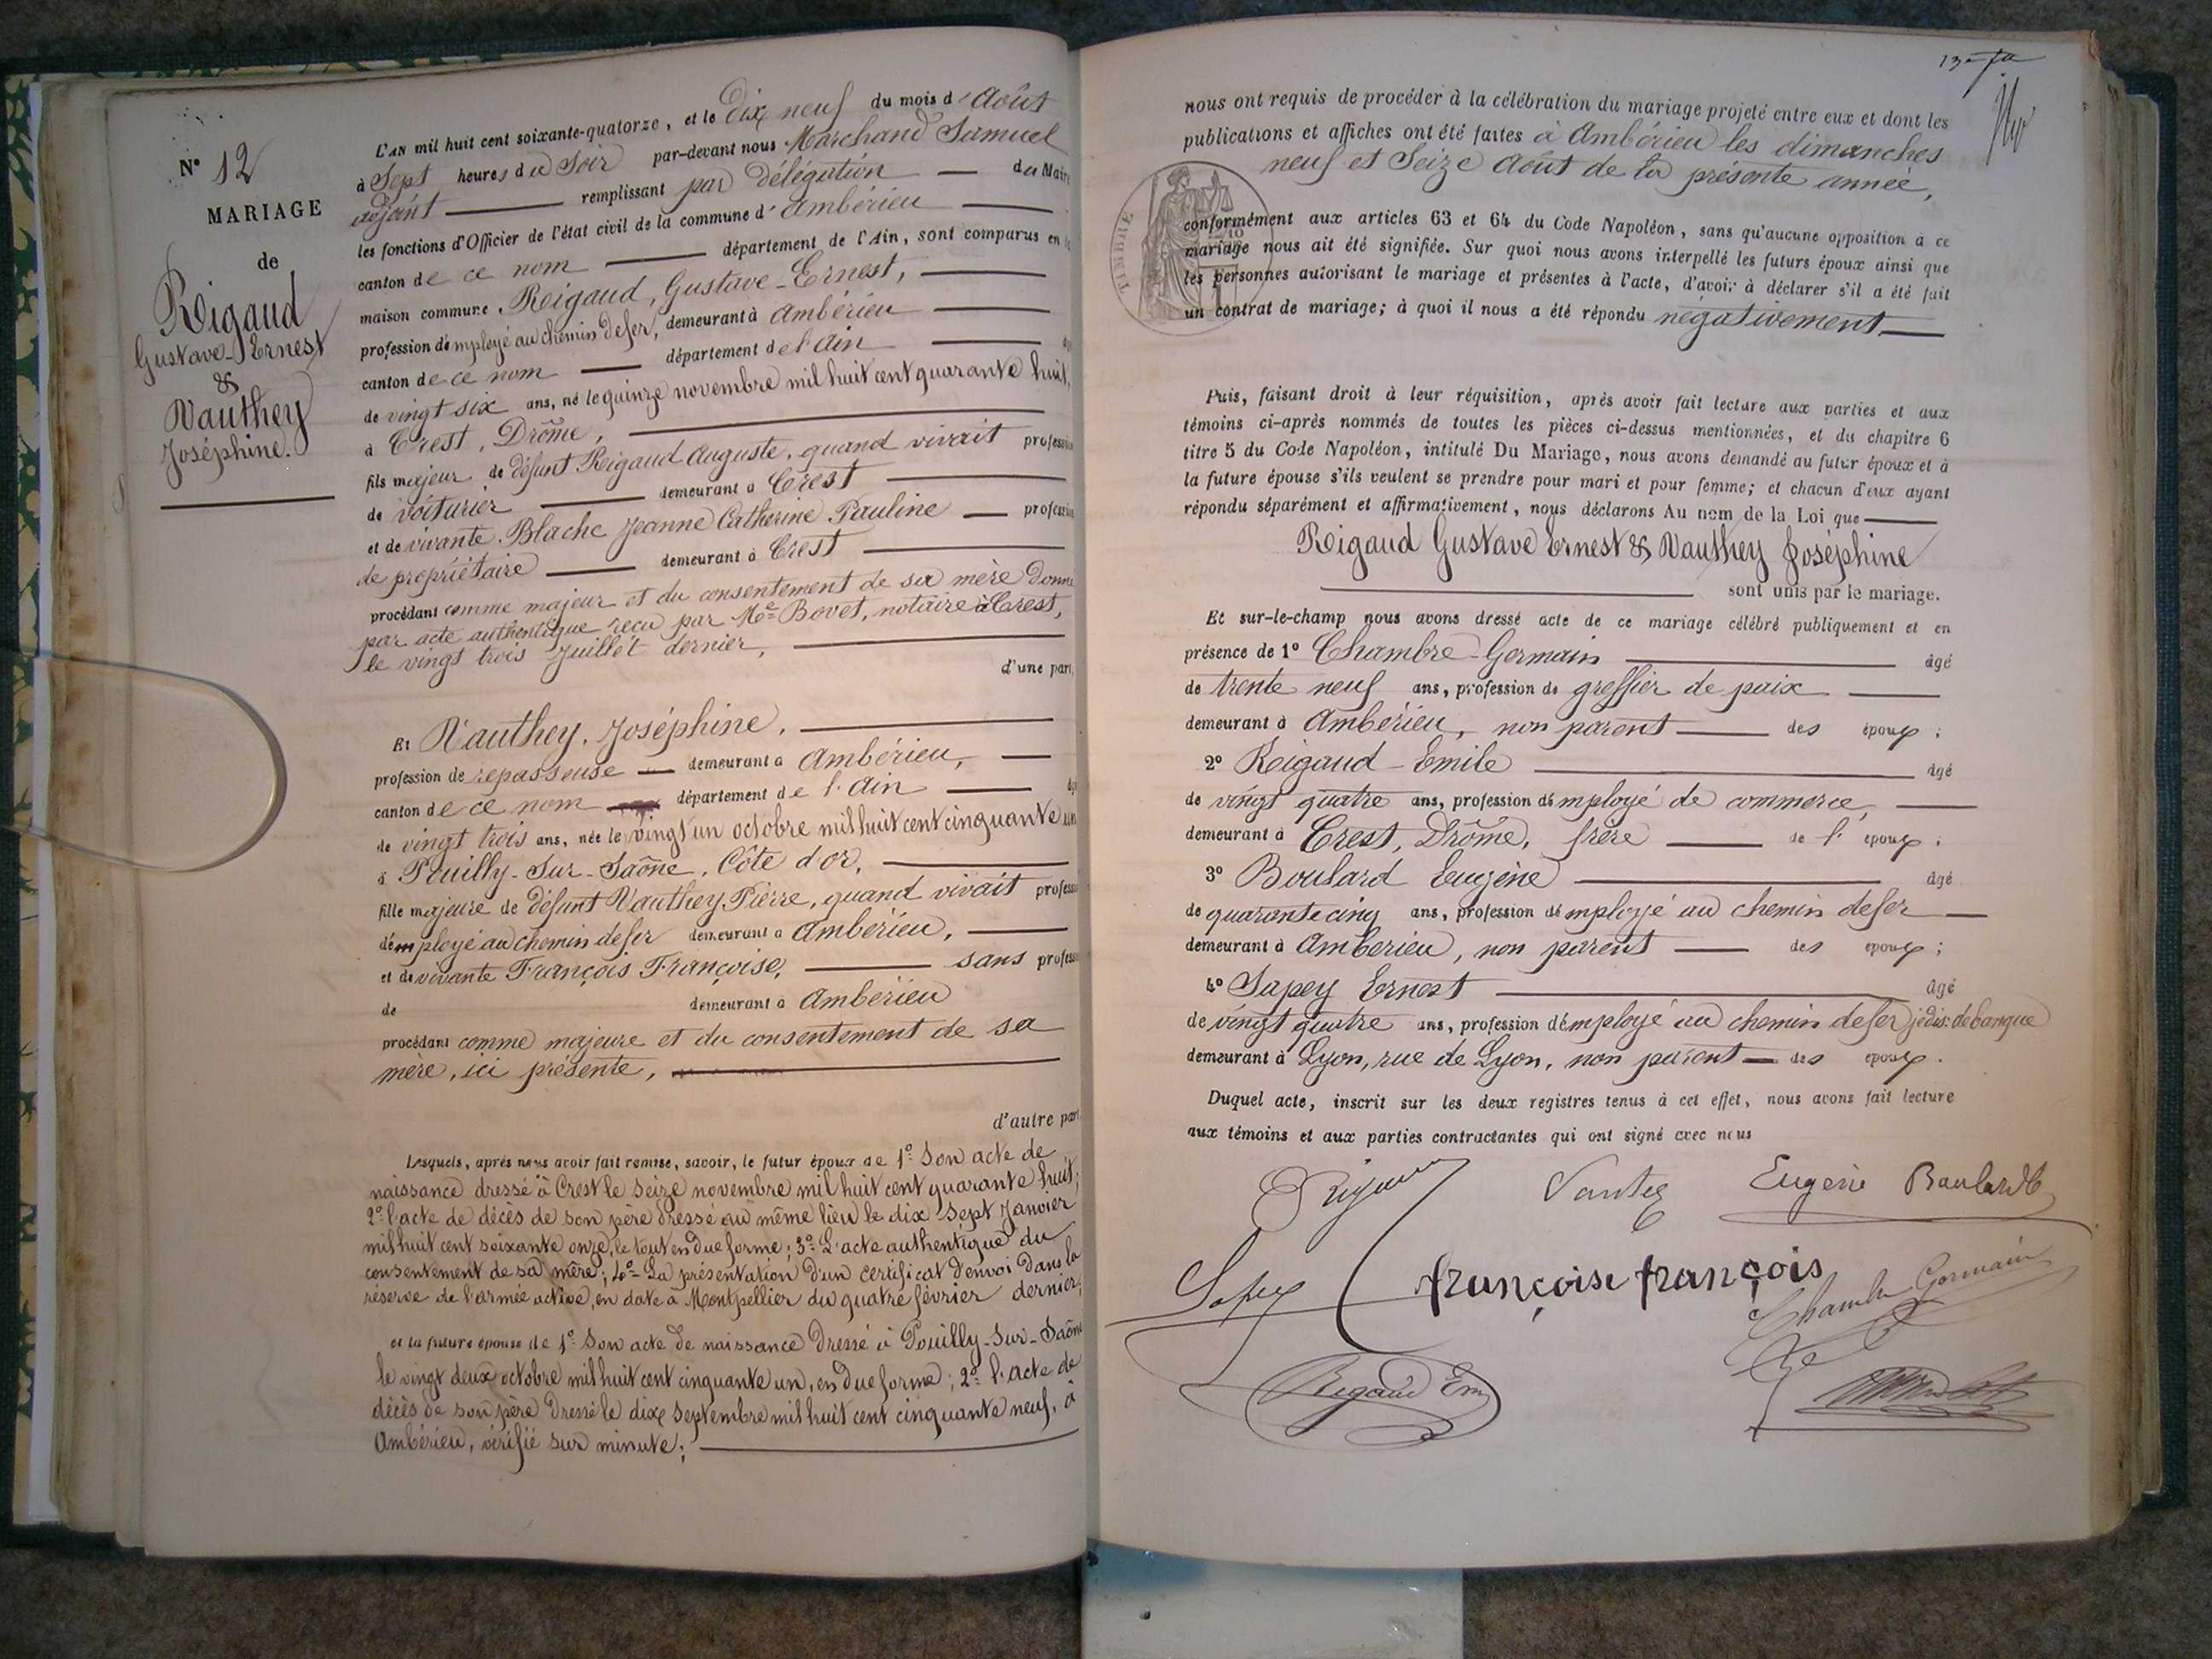 N° 12
MARIAGE
de
Rigaud
Gustave-Ernest
&
Vauthey
Joséphine.
L'AN mil huit cent soixante-quatorze, et le Dix neuf du mois d'Août
à Sept heures du Soir par-devant nous Marchand Samuel
adjoint remplissant par délégation du Maire
les fonctions d'Officier de l'état civil de la commune d'Ambérieu
canton de ce nom département de l'Ain, sont comparus en la
maison commune, Rigaud, Gustave-Ernest,
profession d'employé au chemin de fer, demeurant à Ambérieu
canton de ce nom département de l'Ain
de vingt six ans, né le quinze novembre mil huit cent quarante huit,
à Crest, Drôme,
fils majeur de défunt Rigaud Auguste, quand vivait profession
de voiturier demeurant à Crest
et de vivante Blache Jeanne Catherine Pauline profession
de propriétaire demeurant à Crest
procédant comme majeur et du consentement de sa mère donné
par acte authentique reçu par Me Bovet, notaire à Crest,
le vingt trois Juillet dernier,
d'une part,
Et Vauthey, Joséphine,
profession de repasseuse demeurant à Ambérieu,
canton de ce nom département de l'Ain
de vingt trois ans, née le vingt un octobre mil huit cent cinquante un
à Pouilly-Sur-Saône, Côte d'or,
fille majeure de défunt Vauthey Pierre, quand vivait profession
d'employé au chemin de fer demeurant à Ambérieu,
et de vivante François Françoise, sans profession
de demeurant à Ambérieu
procédant comme majeure et du consentement de sa
mère, ici présente,
d'autre part
Lesquels, après nous avoir fait remise, savoir, le futur époux de 1° Son acte de
naissance dressé à Crest le Seize novembre mil huit cent quarante huit;
2° l'acte de décès de son père dressé au même lieu le dix Sept Janvier
mil huit cent soixante onze, le tout en due forme; 3° L'acte authentique du
consentement de sa mère; 4° La présentation d'un certificat d'envoi dans la
réserve de l'armée active, en date à Montpellier du quatre février dernier;
et la future épouse de 1° Son acte de naissance Dressé à Pouilly-Sur-Saône
le vingt deux octobre mil huit cent cinquante un, en due forme; 2° l'acte de
décès de son père Dressé le dix Septembre mil huit cent cinquante neuf, à
Ambérieu, vérifié sur minute;
nous ont requis de procéder à la célébration du mariage projeté entre eux et dont les
publications et affiches ont été faites à Ambérieu les dimanches
neuf et Seize Août de la présente année,
TIMBRE
conformément aux articles 63 et 64 du Code Napoléon, sans qu'aucune opposition à ce
mariage nous ait été signifiée. Sur quoi nous avons interpellé les futurs époux ainsi que
les personnes autorisant le mariage et présentes à l'acte, d'avoir à déclarer s'il a été fait
un contrat de mariage; à quoi il nous a été répondu négativement
Puis, faisant droit à leur réquisition, après avoir fait lecture aux parties et aux
témoins ci-après nommés de toutes les pièces ci-dessus mentionnées, et du chapitre 6
titre 5 du Code Napoléon, intitulé Du Mariage, nous avons demandé au futur époux et à
la future épouse s'ils veulent se prendre pour mari et pour femme; et chacun d'eux ayant
répondu séparément et affirmativement, nous déclarons Au nom de la Loi que
Rigaud Gustave Ernest & Vauthey Joséphine
sont unis par le mariage.
Et sur-le-champ nous avons dressé acte de ce mariage célébré publiquement et en
présence de 1° Chambre Germain âgé
de trente neuf ans, profession de greffier de paix
demeurant à Ambérieu, non parent des époux;
2° Rigaud-Emile âgé
de vingt quatre ans, profession d'employé de commerce,
demeurant à Crest, Drôme, frère de l'époux;
3° Boulard Eugène âgé
de quarante cinq ans, profession d'employé au chemin de fer
demeurant à Amberieu, non parent des époux;
4° Sapey Ernest âgé
de vingt quatre ans, profession d'employé au chemin de fer je dis: de banque
demeurant à Lyon, rue de Lyon, non parent des époux.
Duquel acte, inscrit sur les deux registres tenus à cet effet, nous avons fait lecture
aux témoins et aux parties contractantes qui ont signé avec nous
Eugène Boulard
Sapey françoise françois
Chambre Germain
Rigaud Em